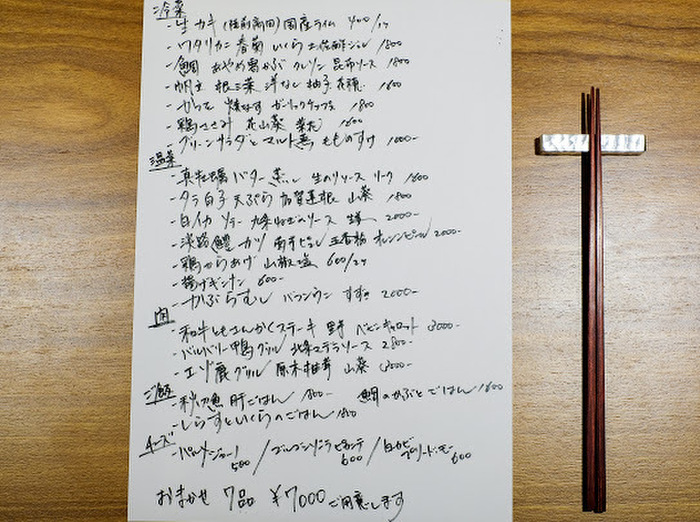 冷菜
- 生カキ (陸前高田) 国産ライム 400/1ヶ
- ワタリカニ 春菊 いくら 土佐酢ジュレ 1800
- 鯛 あやめ雪かぶ クレソン 昆布ソース 1800
- 帆立 根三つ葉 洋なし 柚子 花穂 1600
- かつお 焼なす ガーリックチップス 1800
- 鶏ささみ 花山葵 菜花 1600
- グリーンサラダとマルト 1000-
温菜
- 真牡蠣 バター蒸し 生のりソース リーク 1800
- タラ白子 天ぷら 加賀蓮根 山葵 1800
- 白イカ ソテー 九条ねぎのソース 2000-
- 淡路鱧カツ 五香粉 オレンジピール 2000-
- 鶏からあげ 山椒塩 600/2ヶ
- 揚げギンナン 600-
- かぶらむし 2000-
肉
- 和牛ともさんかくステーキ 3000-
- バルバリー鴨グリル マデラソース 2800-
- エゾ鹿グリル 原木椎茸 山葵 3000-
ご飯
- 秋刀魚 肝ごはん 1800- 鯛のかぶとごはん 1600
- しらすといくらのごはん 1800
チーズ
- パルメジャーノ 500 / ゴルゴンゾーラピカンテ 600 / 白カビ ブリードモー 600
おまかせ 7品 ¥7000 ご用意します